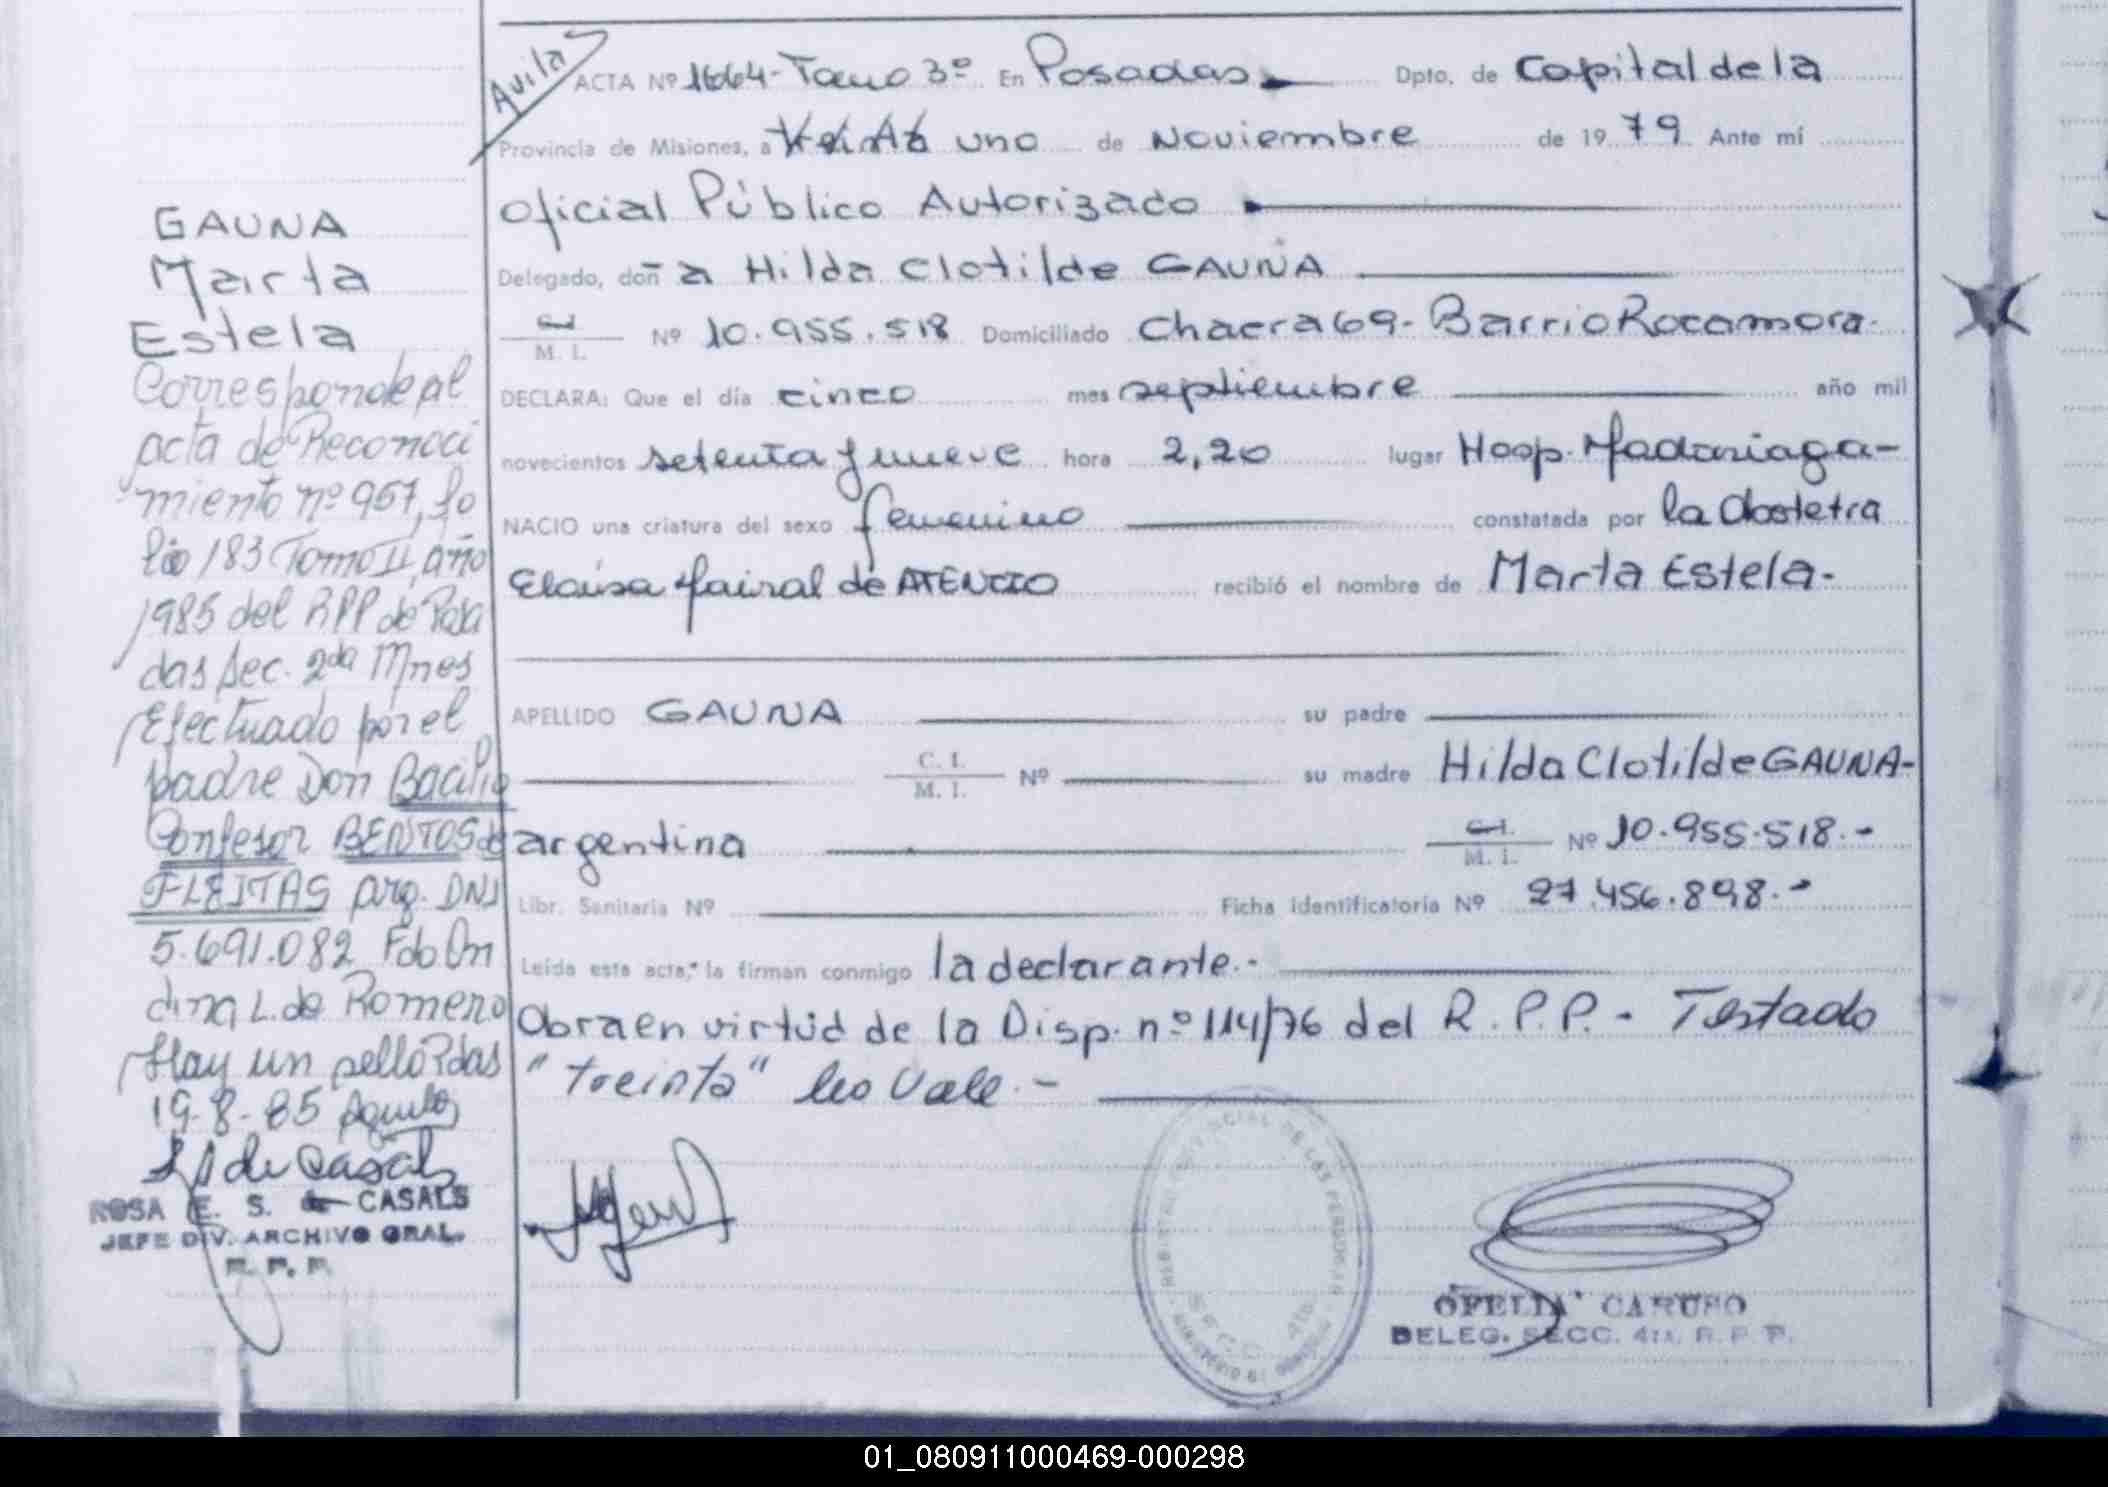 Avila
ACTA Nº 1664-Tomo 3º En Posadas Dpto. de Capital de la
Provincia de Misiones, a uno de Noviembre de 1979 Ante mí
Oficial Público Autorizado
Delegado, doña Hilda Clotilde GAUNA
C.I.
M. I. Nº 10.955.518 Domiciliado Chacra 69- Barrio Rocamora-
DECLARA: Que el día cinco mes septiembre año mil
novecientos setenta y nueve hora 2,20 lugar Hosp. Madariaga-
NACIO una criatura del sexo femenino constatada por la Obstetra
Eloisa Mairal de ATENCIO recibió el nombre de Marta Estela-
APELLIDO GAUNA su padre
C. I.
M. I. Nº su madre Hilda Clotilde GAUNA-
argentina C.I.
M. I. Nº 10.955.518.-
Libr. Sanitaria Nº Ficha Identificatoria Nº 27.456.898.-
Leída esta acta, la firman conmigo la declarante.-
Obra en virtud de la Disp. nº 114/76 del R.P.P.- Testado
"treinta" Vale.-
GAUNA
Marta
Estela
Corresponde al
acta de Reconoci
miento nº 957, fo
lio 183 Tomo II, año
1985 del RPP de Posa
das Sec. 2da Mnes
Efectuado por el
padre Don Bacilio
Confesor BENITOS de
FLEITAS arg. DNI
5.691.082 Fdo On
dina L. de Romero
Hay un sello Pdas
19-8-85
ROSA E. S. de CASALS
JEFE DIV. ARCHIVO GRAL.
R. P. P.
OFELIA CARUSO
DELEG. SECC. 4ta. R. P. P.
01_080911000469-000298